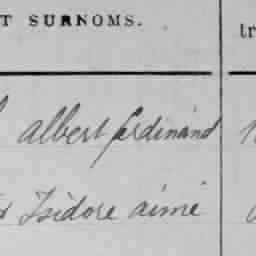 T SURNOMS.
tr
albert ferdinand
Isidore aimé